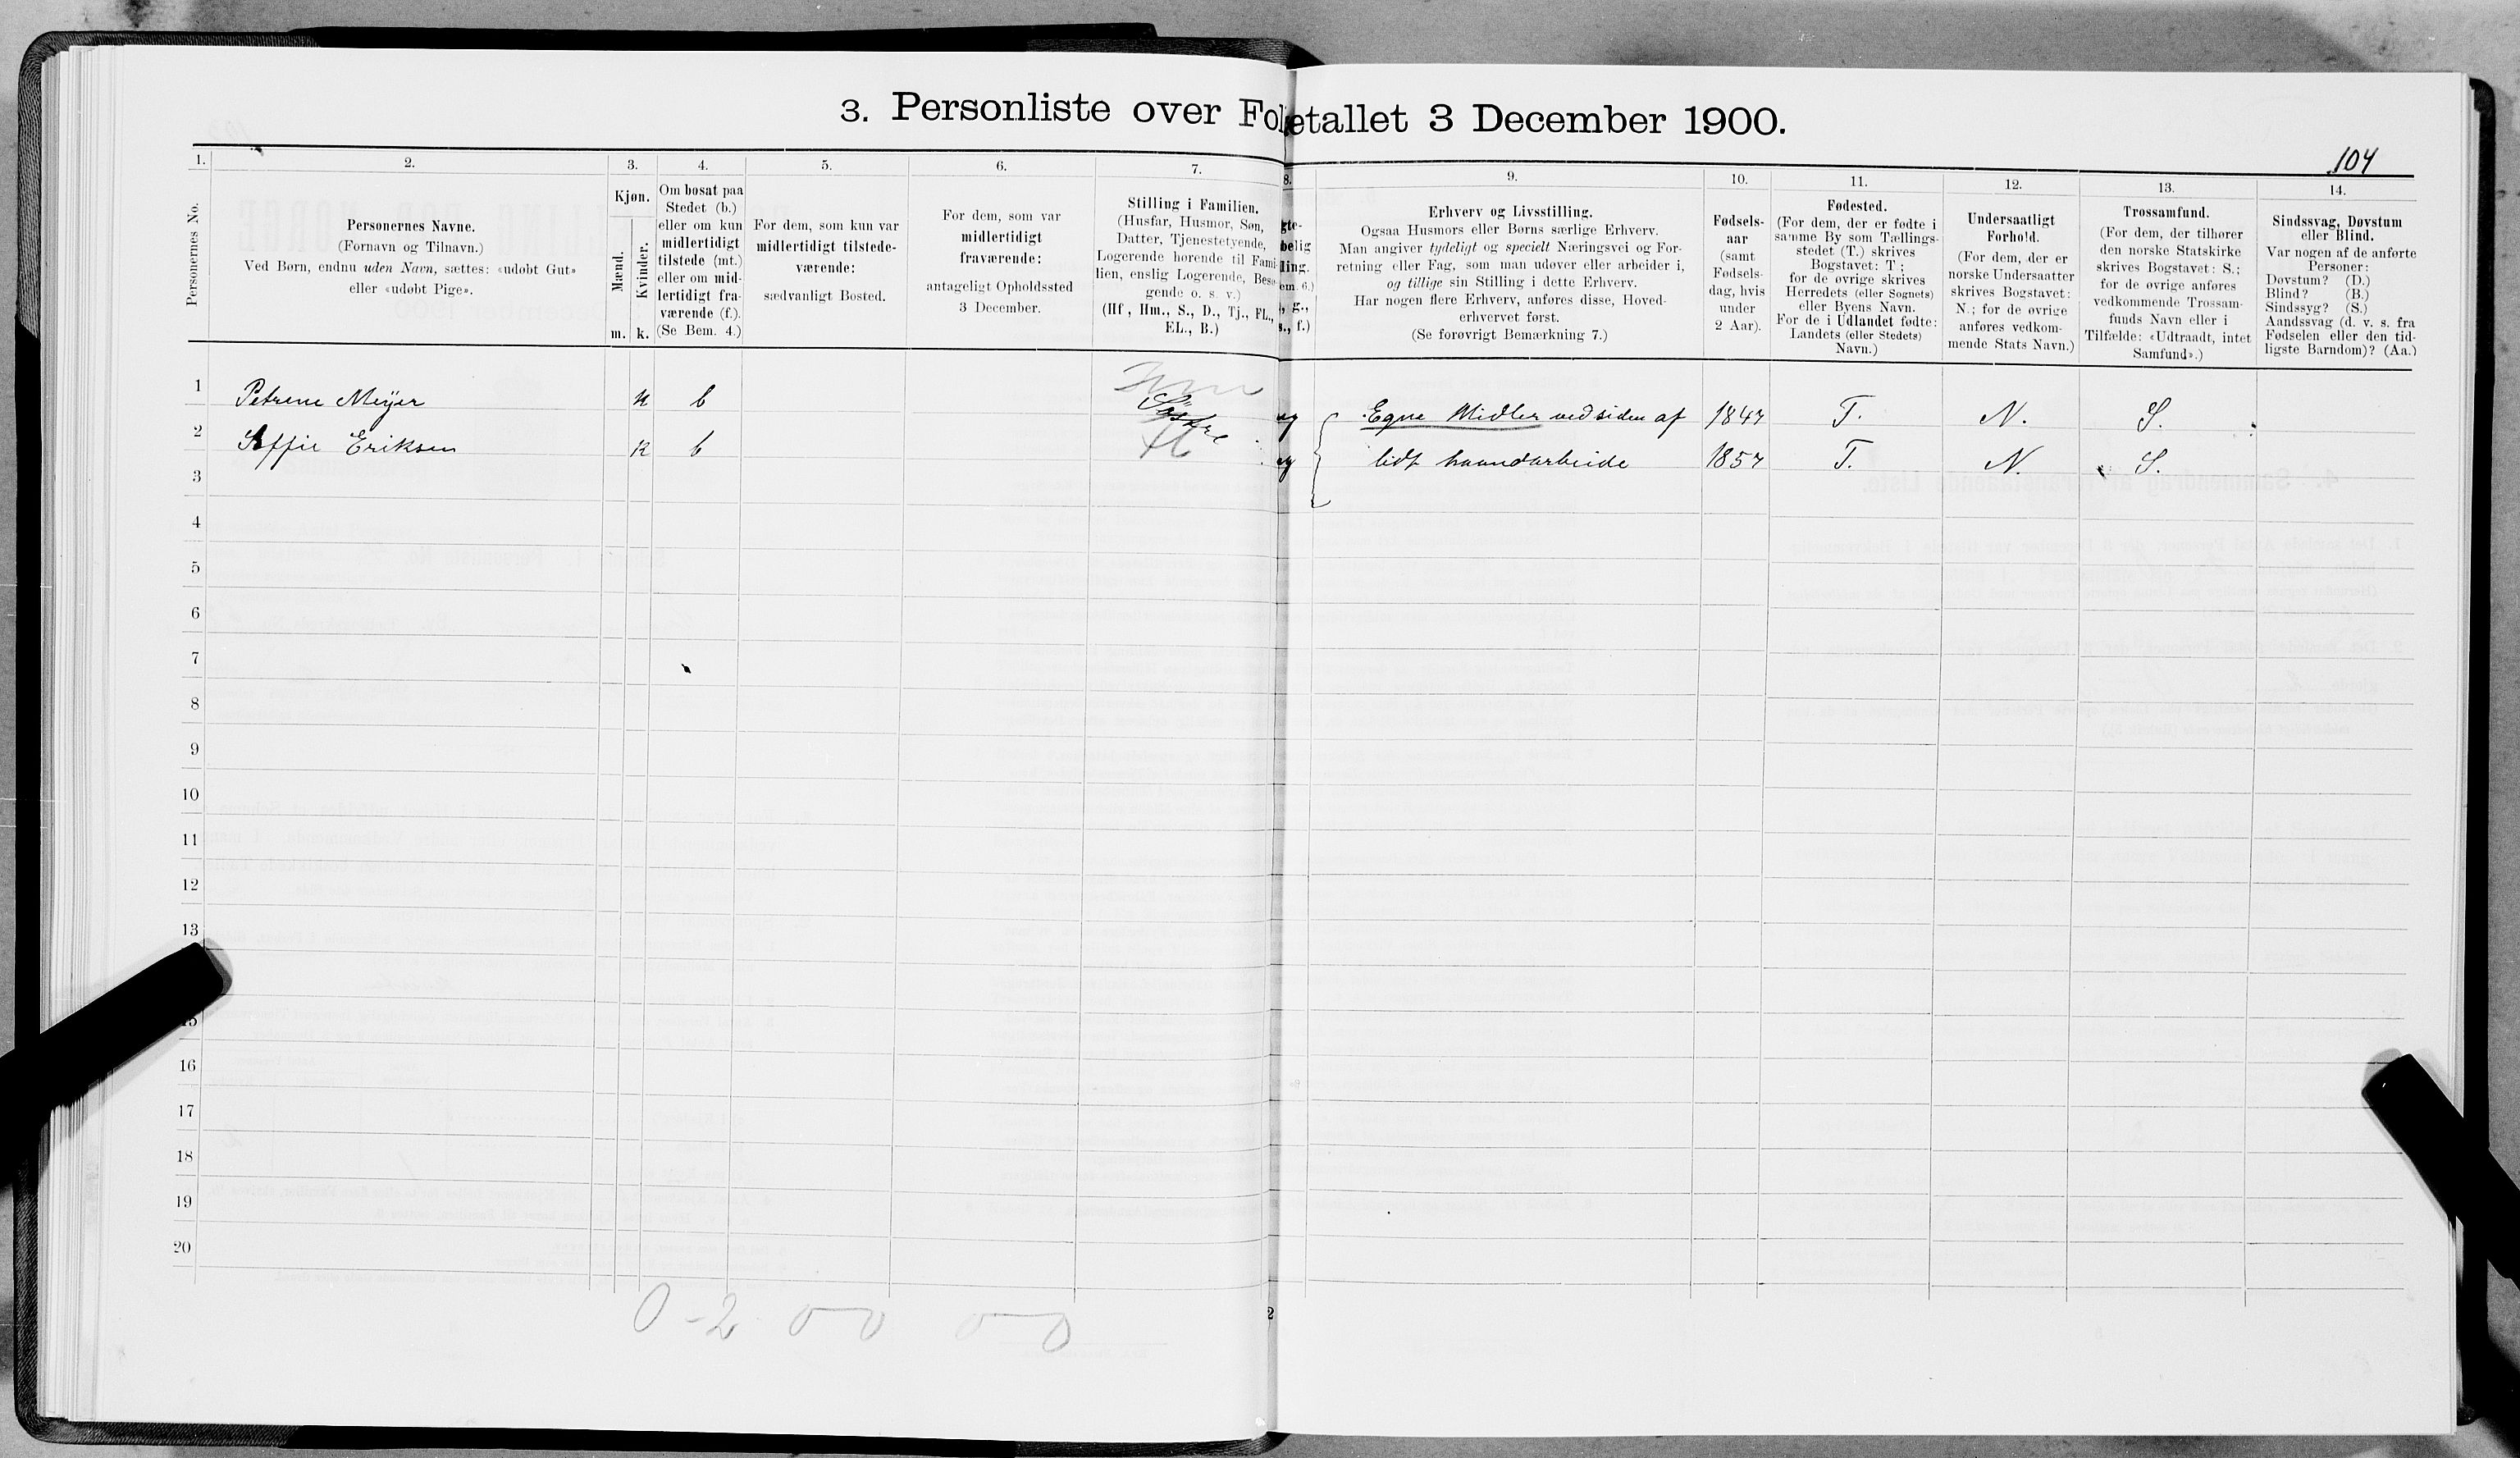 3. Personliste over Folketallet 3 December 1900.
104
1. 2. 3. 4. 5. 6. 7. 8. 9. 10. 11. 12. 13. 14.
Personernes No.
Personernes Navne.
(Fornavn og Tilnavn.)
Ved Børn, endnu uden Navn, sættes: «udøbt Gut»
eller «udøbt Pige».
Kjøn.
Mænd.
Kvinder.
m. k.
Om bosat paa
Stedet (b.)
eller om kun
midlertidigt
tilstede (mt.)
eller om mid-
lertidigt fra-
værende (f.).
(Se Bem. 4.)
For dem, som kun var
midlertidigt tilstede-
værende:
sædvanligt Bosted.
For dem, som var
midlertidigt
fraværende:
antageligt Opholdssted
3 December.
Stilling i Familien.
(Husfar, Husmor, Søn,
Datter, Tjenestetyende,
Logerende hørende til Fami-
lien, enslig Logerende, Besø-
gende o. s. v.)
(Hf., Hm., S., D., Tj., FL.,
EL., B.)
gte-
belig
ling.
em. 6.)
, g.,
s., f.)
Erhverv og Livsstilling.
Ogsaa Husmors eller Børns særlige Erhverv.
Man angiver tydeligt og specielt Næringsvei og For-
retning eller Fag, som man udøver eller arbeider i,
og tillige sin Stilling i dette Erhverv.
Har nogen flere Erhverv, anføres disse, Hoved-
erhvervet først.
(Se forøvrigt Bemærkning 7.)
Fødsels-
aar
(samt
Fødsels-
dag, hvis
under
2 Aar).
Fødested.
(For dem, der er fødte i
samme By som Tællings-
stedet (T.) skrives
Bogstavet: T;
for de øvrige skrives
Herredets (eller Sognets)
eller Byens Navn.
For de i Udlandet fødte:
Landets (eller Stedets)
Navn.)
Undersaatligt
Forhold.
(For dem, der er
norske Undersaatter
skrives Bogstavet:
N.; for de øvrige
anføres vedkom-
mende Stats Navn.)
Trossamfund.
(For dem, der tilhører
den norske Statskirke
skrives Bogstavet: S.;
for de øvrige anføres
vedkommende Trossam-
funds Navn eller i
Tilfælde: «Udtraadt, intet
Samfund».)
Sindssvag, Døvstum
eller Blind.
Var nogen af de anførte
Personer:
Døvstum? (D.)
Blind? (B.)
Sindssyg? (S.)
Aandssvag (d. v. s. fra
Fødselen eller den tid-
ligste Barndom)? (Aa.)
1 Petrene Meyer k b ug Egne Midler ved siden af 1847 T. N. S.
2 Soffie Eriksen k b ug lidt haandarbeide 1857 T. N. S.
3
4
5
6
7
8
9
10
11
12
13
15
16
17
18
19
20
0-2 0-0 0-0
2